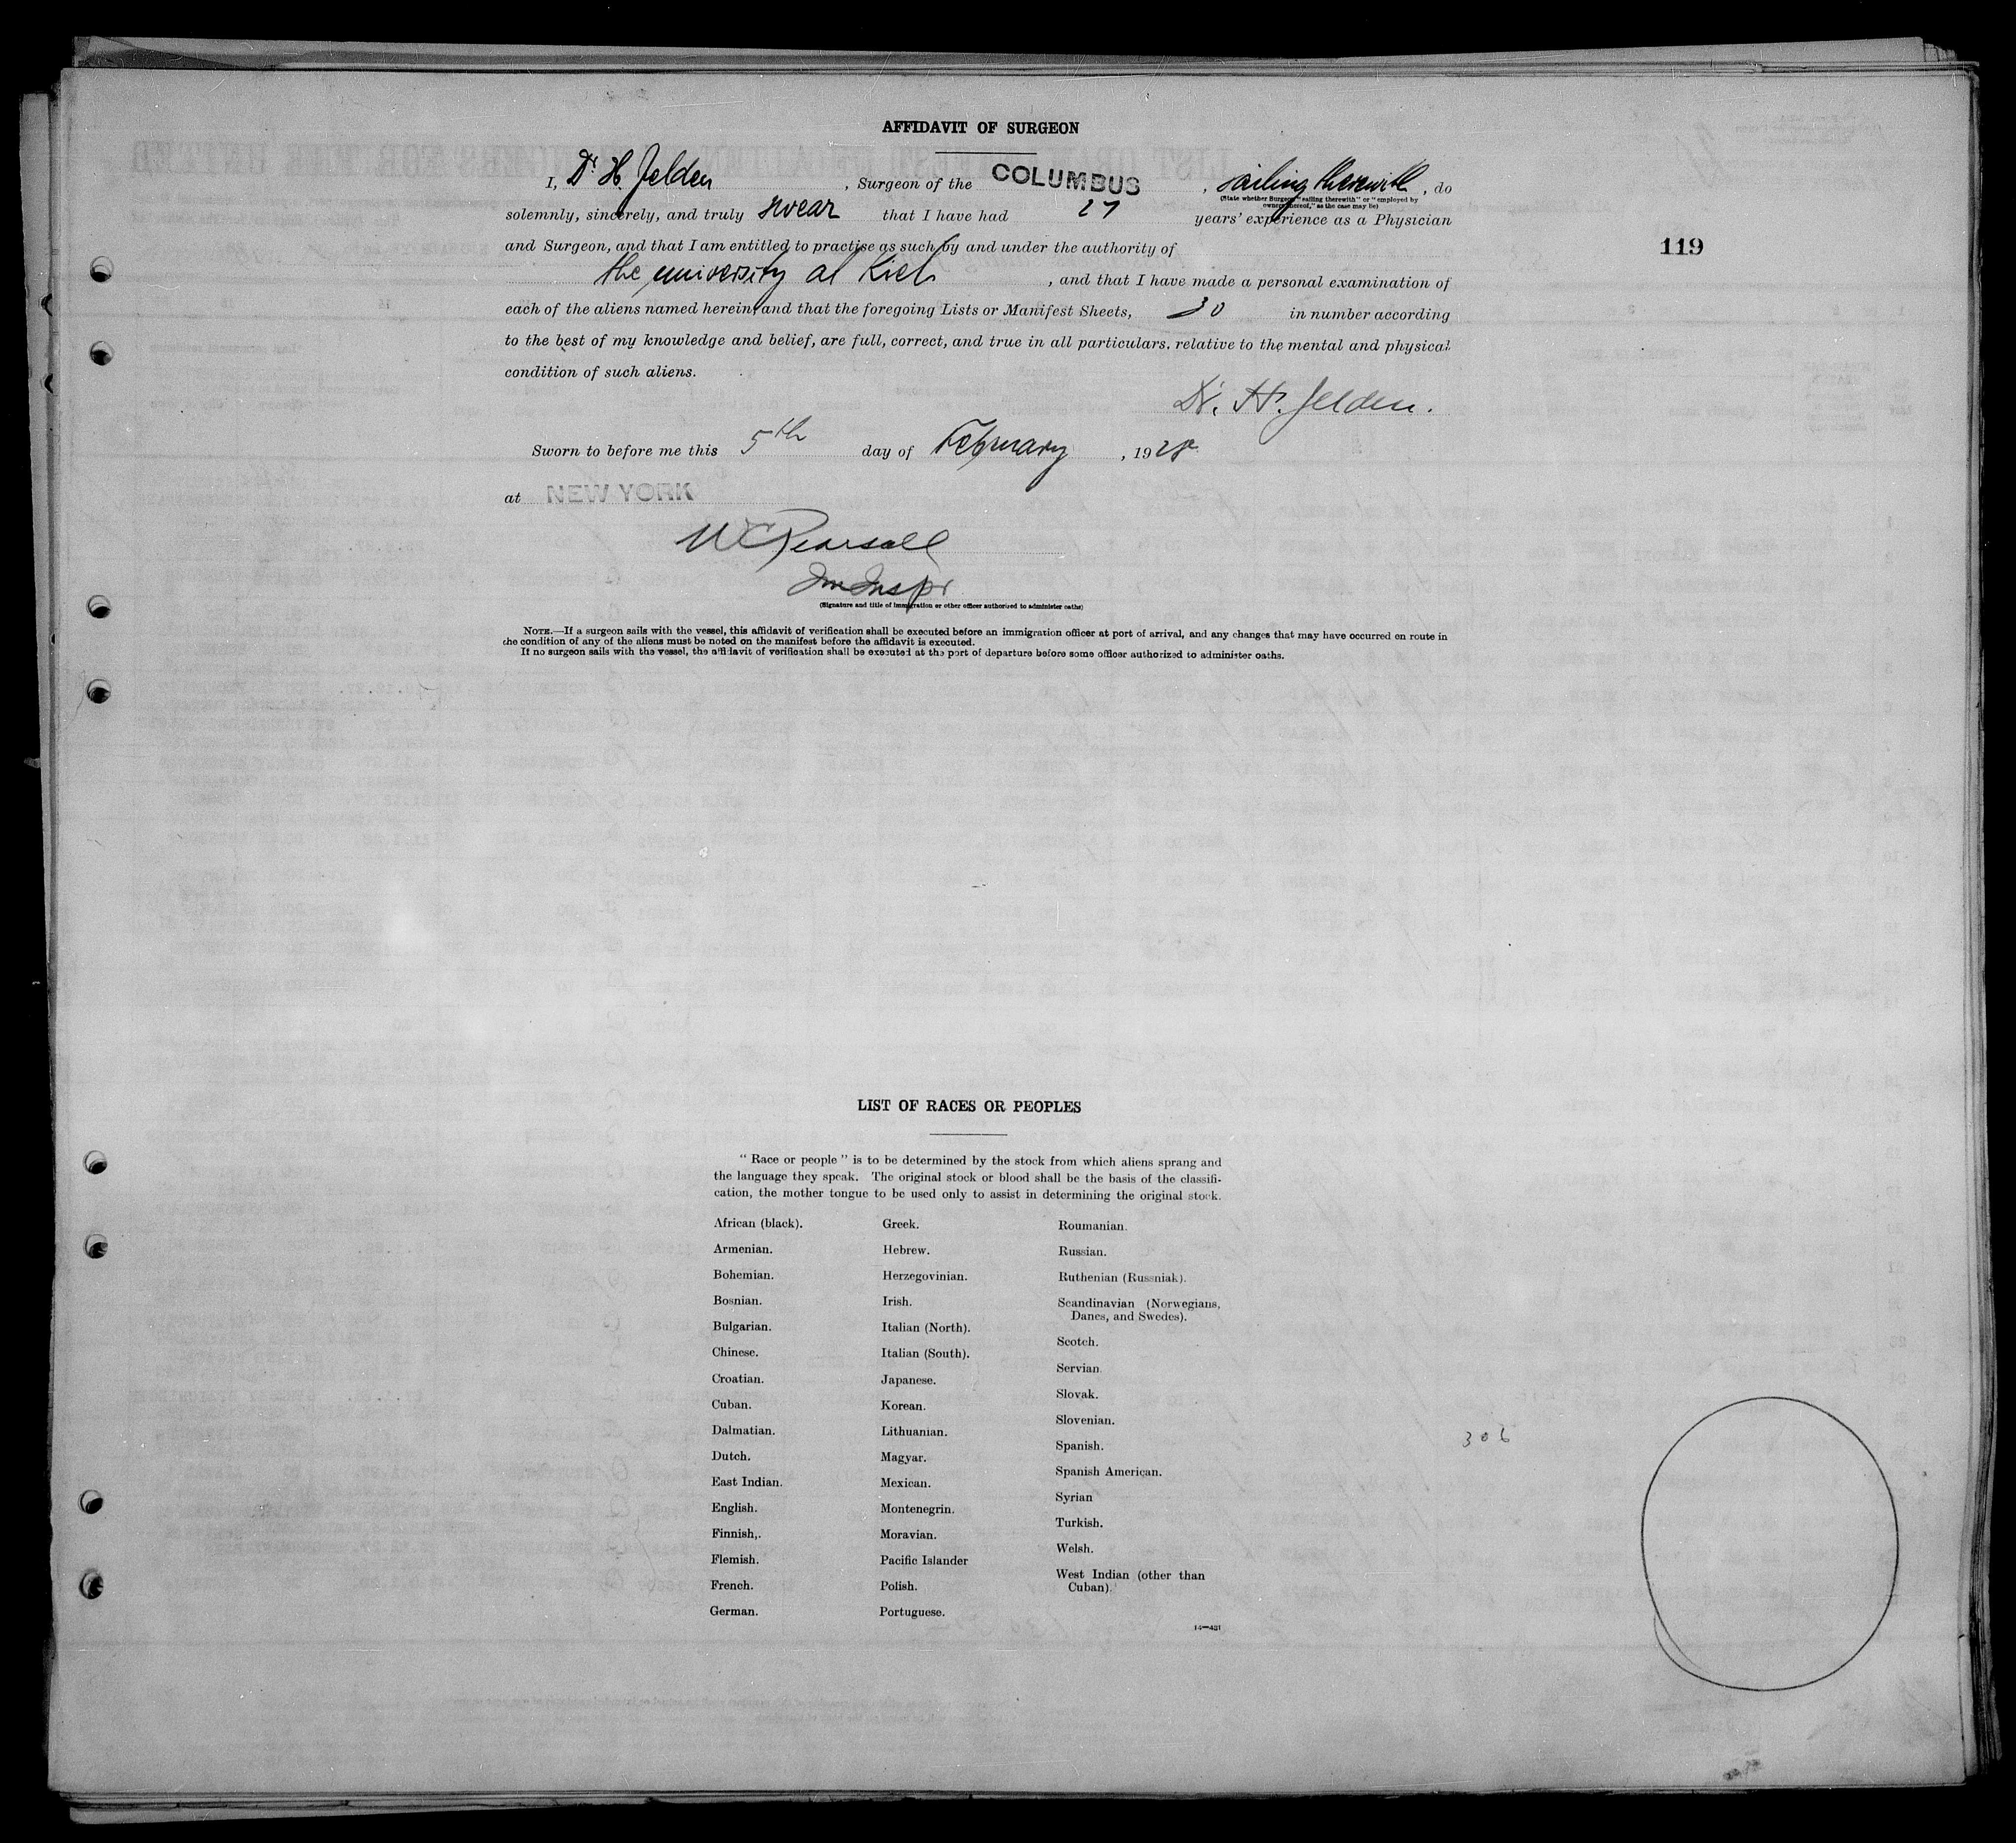 AFFIDAVIT OF SURGEON
I, Dr. H. Jelden, Surgeon of the COLUMBUS, sailing therewith, do
(State whether Surgeon "sailing therewith" or "employed by
owners thereof," as the case may be)
solemnly, sincerely, and truly swear that I have had 27 years' experience as a Physician
119
and Surgeon, and that I am entitled to practise as such by and under the authority of
the university at Kiel, and that I have made a personal examination of
each of the aliens named herein, and that the foregoing Lists or Manifest Sheets, 30 in number according
to the best of my knowledge and belief, are full, correct, and true in all particulars, relative to the mental and physical
condition of such aliens.
Dr. H. Jelden.
Sworn to before me this 5th day of February, 1928
at NEW YORK
W C Pearsall
Im Inspr
(Signature and title of immigration or other officer authorized to administer oaths)
NOTE.—If a surgeon sails with the vessel, this affidavit of verification shall be executed before an immigration officer at port of arrival, and any changes that may have occurred en route in
the condition of any of the aliens must be noted on the manifest before the affidavit is executed.
If no surgeon sails with the vessel, the affidavit of verification shall be executed at the port of departure before some officer authorized to administer oaths.
LIST OF RACES OR PEOPLES
" Race or people " is to be determined by the stock from which aliens sprang and
the language they speak. The original stock or blood shall be the basis of the classifi-
cation, the mother tongue to be used only to assist in determining the original stock.
African (black).
Armenian.
Bohemian.
Bosnian.
Bulgarian.
Chinese.
Croatian.
Cuban.
Dalmatian.
Dutch.
East Indian.
English.
Finnish,.
Flemish.
French.
German.
Greek.
Hebrew.
Herzegovinian.
Irish.
Italian (North).
Italian (South).
Japanese.
Korean.
Lithuanian.
Magyar.
Mexican.
Montenegrin.
Moravian.
Pacific Islander
Polish.
Portuguese.
Roumanian.
Russian.
Ruthenian (Russniak).
Scandinavian (Norwegians,
Danes, and Swedes).
Scotch.
Servian.
Slovak.
Slovenian.
Spanish.
Spanish American.
Syrian
Turkish.
Welsh.
West Indian (other than
Cuban).
14—431
306